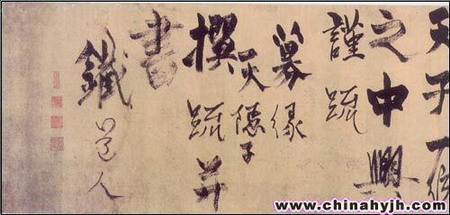 天子
之中興
謹疏
募緣
隱子
撰疏并
書
鐵道人
www.chinahyjh.com